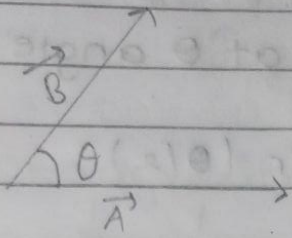 B⃗
θ
A⃗